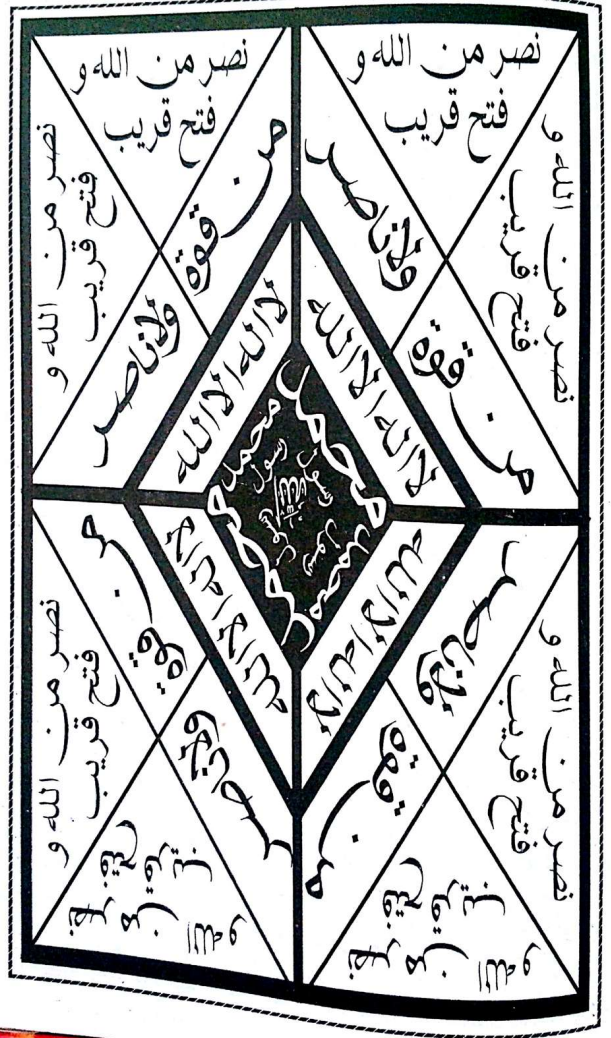 نصر من الله و
فتح قريب
نصر من الله و
فتح قريب
نصر من الله و
فتح قريب
نصر من الله و
فتح قريب
من قوة
ولا ناصر
من قوة
ولا ناصر
لا اله الا الله
لا اله الا الله
محمد
محمد
رسول
الله
رسول
محمد
لا اله الا الله
لا اله الا الله
من قوة
ولا ناصر
من قوة
ولا ناصر
نصر من الله و
فتح قريب
نصر من الله و
فتح قريب
نصر من الله و
فتح قريب
نصر من الله و
فتح قريب